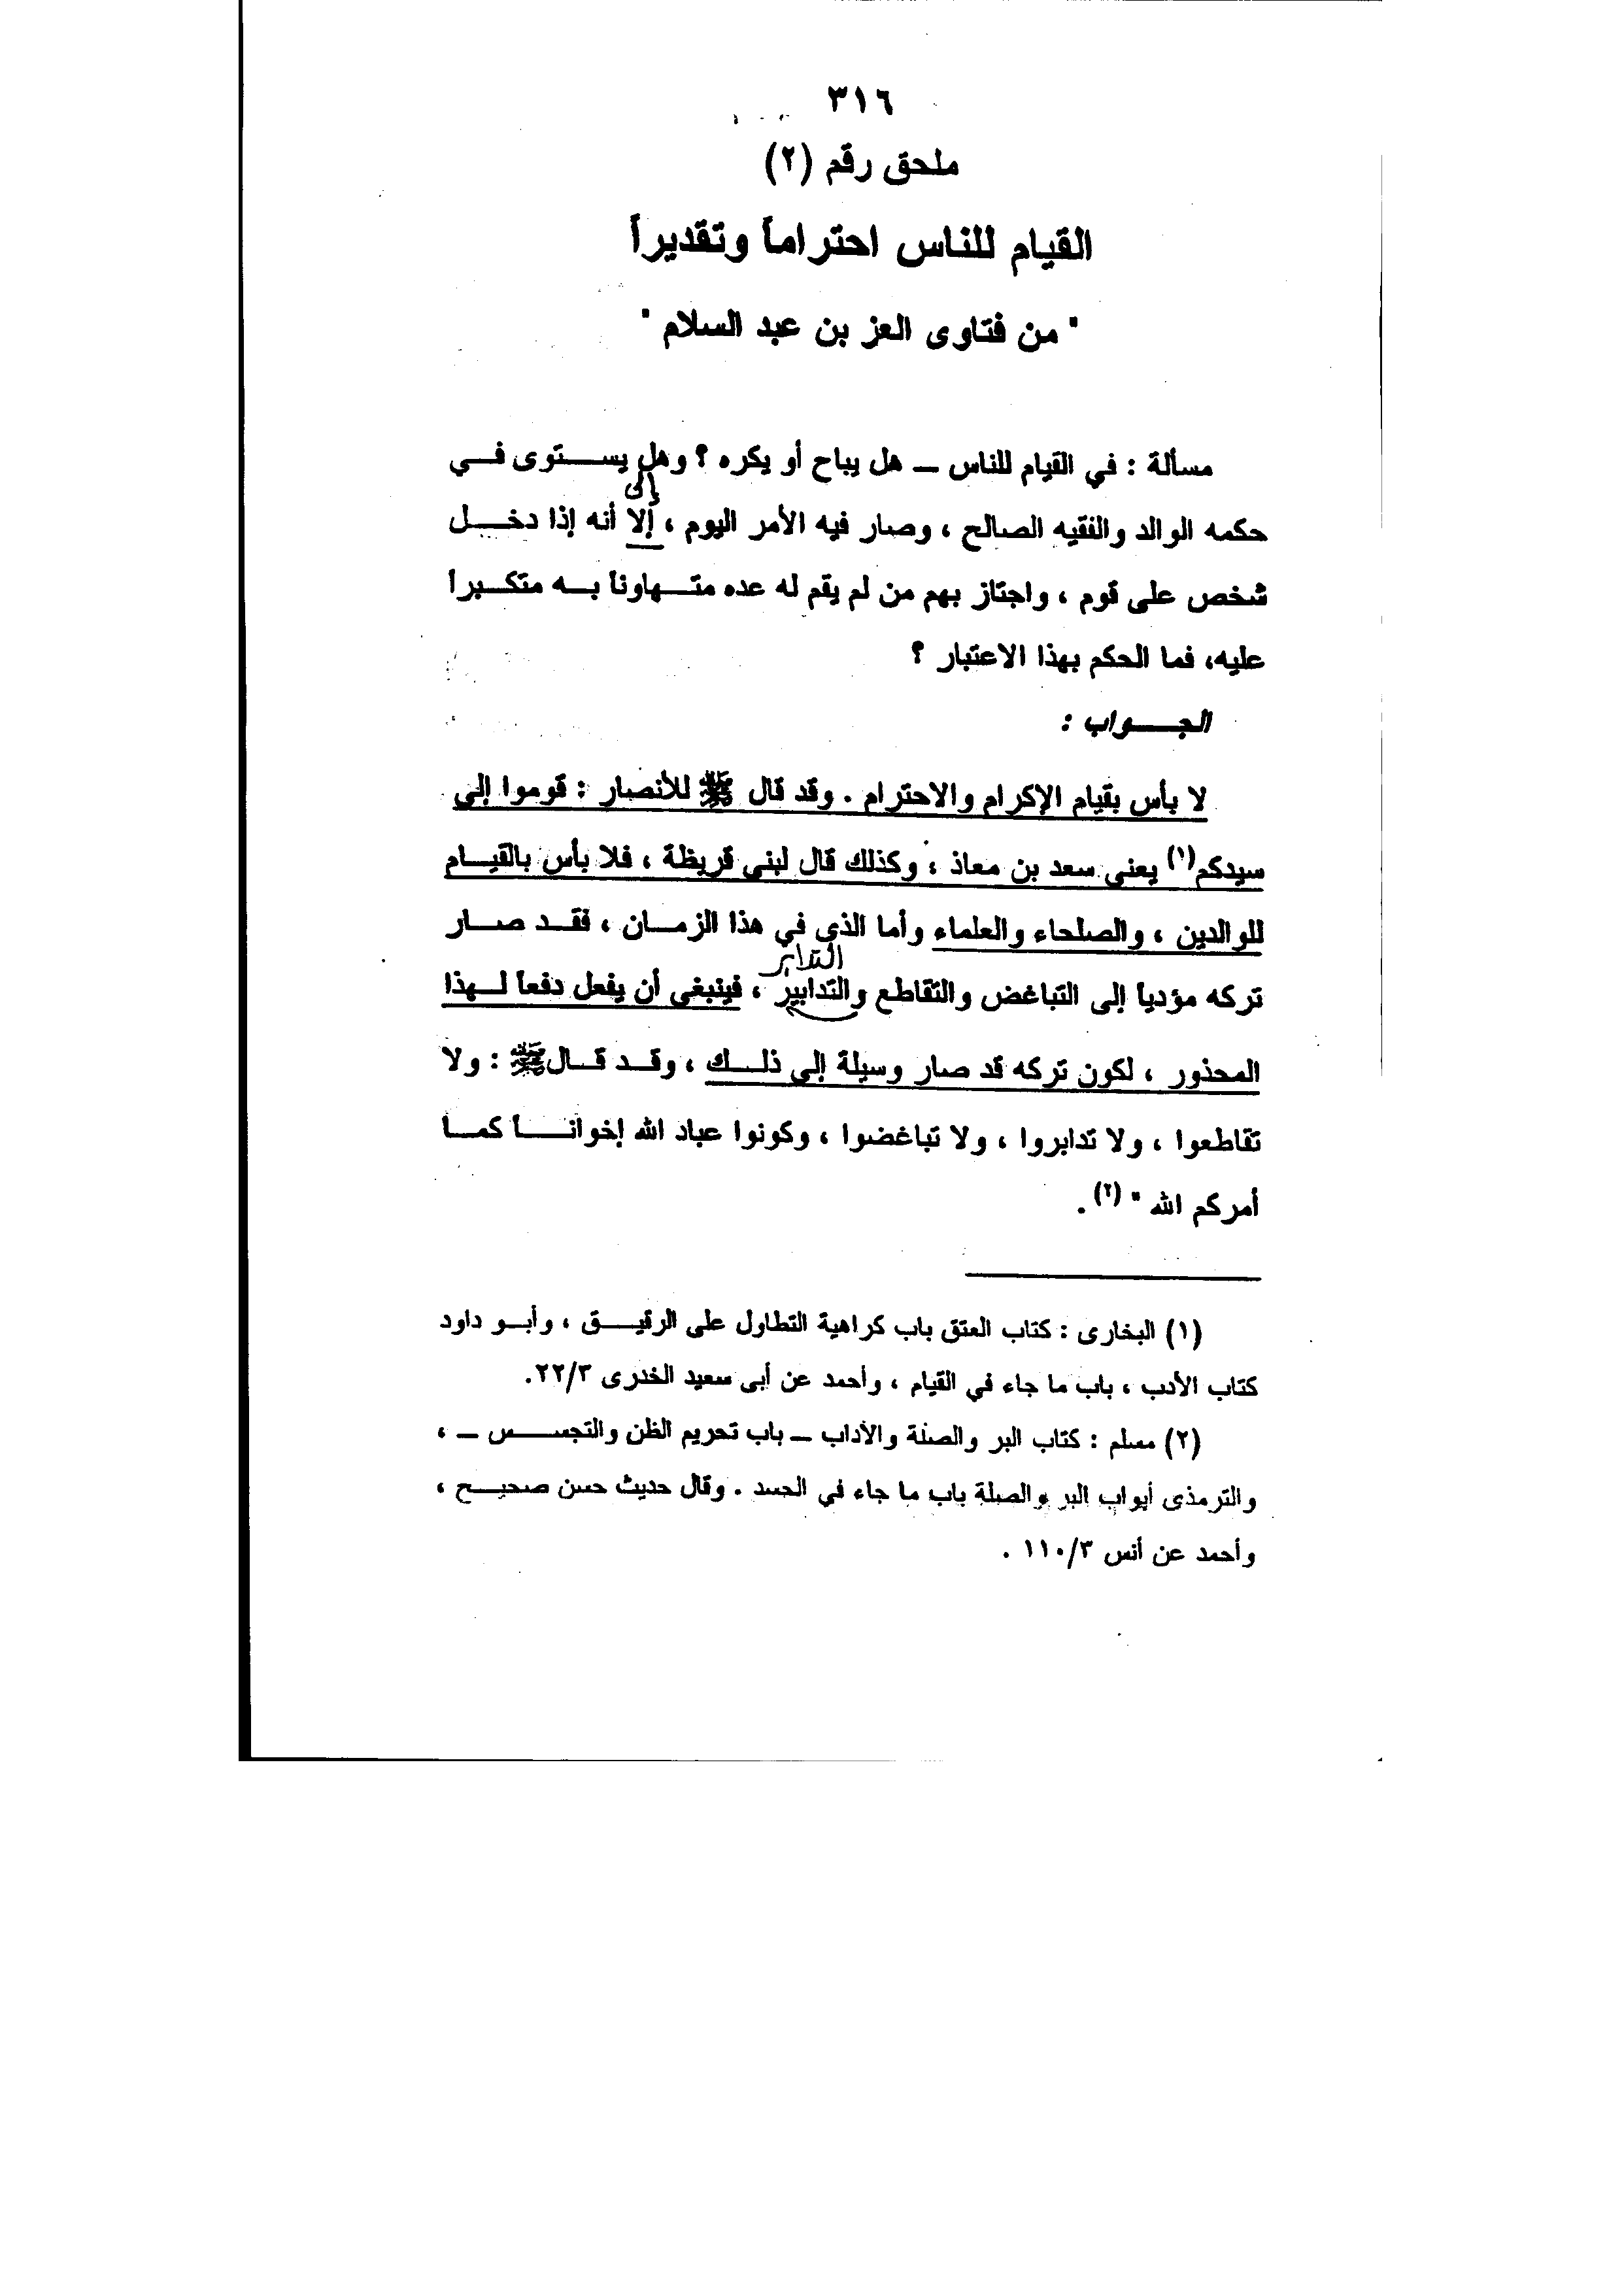 ٣١٦
ملحق رقم (٢)
القيام للناس احتراماً وتقديراً
" من فتاوى العز بن عبد السلام "
مسألة : في القيام للناس ــ هل يباح أو يكره ؟ وهل يستوى في
إلى
حكمه الوالد والفقيه الصالح ، وصار فيه الأمر اليوم ، إلا أنه إذا دخل
شخص على قوم ، واجتاز بهم من لم يقم له عده متهاوناً به متكبراً
عليه، فما الحكم بهذا الاعتبار ؟
الجواب :
لا بأس بقيام الإكرام والاحترام . وقد قال ﷺ للأنصار : قوموا إلى
سيدكم(١) يعنى سعد بن معاذ ، وكذلك قال لبنى قريظة ، فلا بأس بالقيام
للوالدين ، والصلحاء والعلماء وأما الذى في هذا الزمان ، فقد صار
التدابر
تركه مؤدياً إلى التباغض والتقاطع والتدابير ، فينبغى أن يفعل دفعاً لهذا
المحذور ، لكون تركه قد صار وسيلة إلى ذلك ، وقد قال ﷺ : ولا
تقاطعوا ، ولا تدابروا ، ولا تباغضوا ، وكونوا عباد الله إخواناً كما
أمركم الله " (٢) .
(١) البخارى : كتاب العتق باب كراهية التطاول على الرقيق ، وأبو داود
كتاب الأدب ، باب ما جاء في القيام ، وأحمد عن أبى سعيد الخدرى ٢٢/٣.
(٢) مسلم : كتاب البر والصلة والآداب ــ باب تحريم الظن والتجسس ــ ،
والترمذى أبواب البر والصلة باب ما جاء في الحسد . وقال حديث حسن صحيح ،
وأحمد عن أنس ١١٠/٣ .